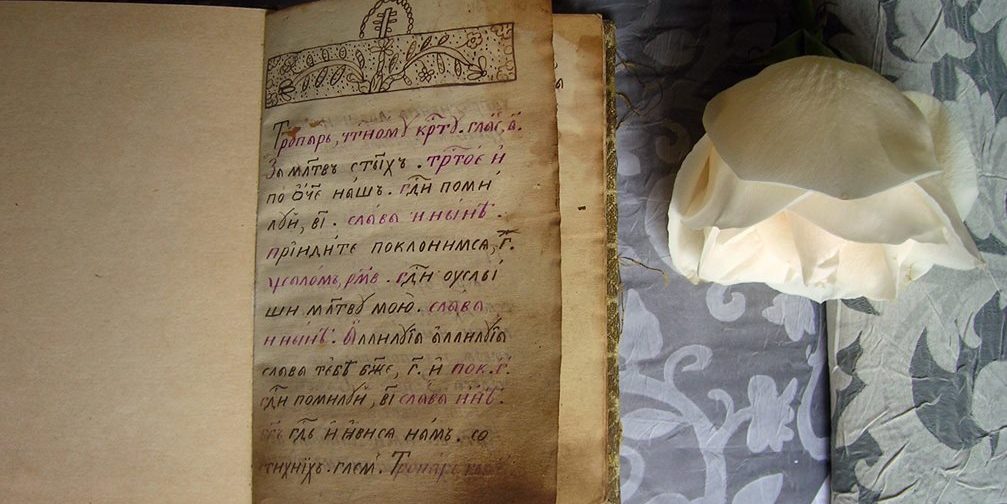 Тропарь, чт҇ному кр҇ту. глас, а҃.
За мл҃твъ ст҃ыхъ. тр҃тое и҆
по ѻ҆́ч҃е нашъ. гд҇и поми
луй, в҃і. слава и нынѣ.
прїидите поклонимся, г҃.
ѱаломъ, рм҃в. гд҇и оуслы
ши мл҃тву мою̀. слава
и нынѣ. аллилуїа аллилуїа
слава тебѣ бж҃е, г҃. и пок. г҃.
гд҇и помилуй, в҃і слава и нн҃ѣ.
гд҇ь и ꙗ҆виса намъ. со
Тропарь